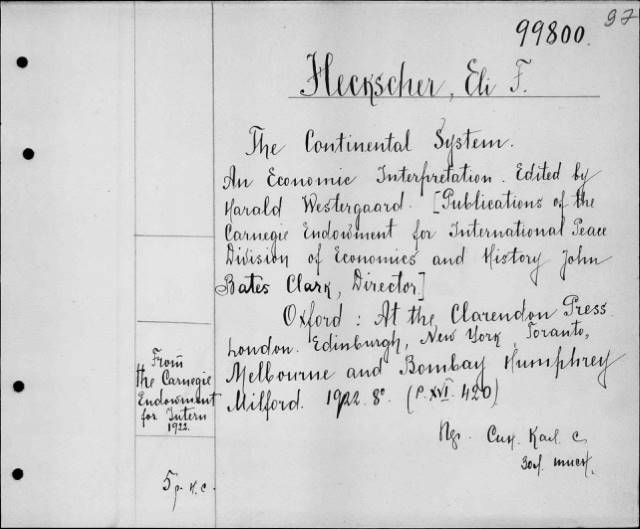 99800.
Heckscher, Eli F.
The Continental System.
An Economic Interpretation. Edited by
Harald Westergaard. [Publications of the
Carnegie Endowment for International Peace
Division of Economics and History John
Bates Clark, Director]
Oxford: At the Clarendon Press.
London. Edinburgh, New York, Toranto,
Melbourne and Bombay Humphrey
Milford. 1922. 8º. (p. XVI. 420)
From
the Carnegie
Endowment
for Intern
1922.
5 p. н. с.